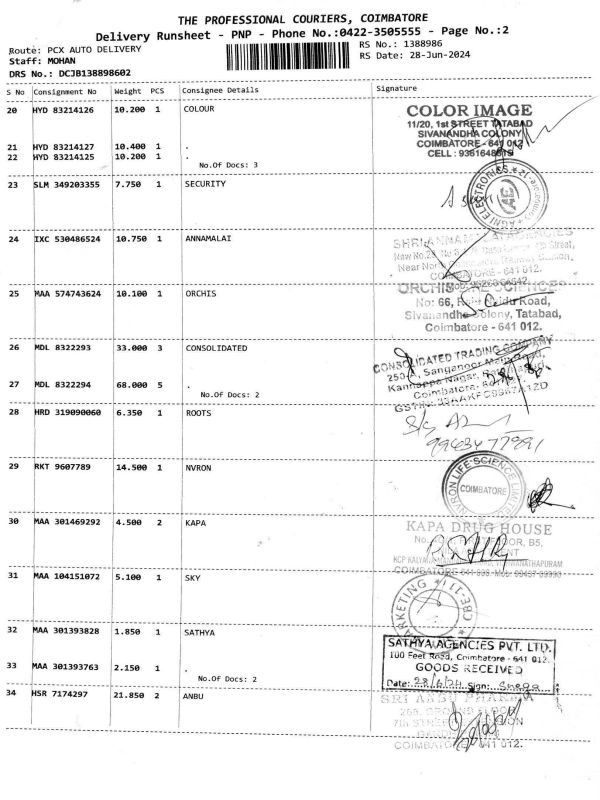 THE PROFESSIONAL COURIERS, COIMBATORE
Delivery Runsheet - PNP - Phone No.:0422-3505555 - Page No.:2
Route: PCX AUTO DELIVERY
RS No.: 1388986
Staff: MOHAN
RS Date: 28-Jun-2024
DRS No.: DCJB138898602
S No Consignment No Weight PCS Consignee Details Signature
20 HYD 83214126 10.200 1 COLOUR
COLOR IMAGE
11/20, 1st STREET TATABAD
SIVANANDHA COLONY
COIMBATORE - 641 012
CELL : 9361648
21 HYD 83214127 10.400 1 .
22 HYD 83214125 10.200 1 .
No.Of Docs: 3
23 SLM 349203355 7.750 1 SECURITY
AGNI ELECTRONICS
Coimbatore
24 IXC 530486524 10.750 1 ANNAMALAI
SHRI ANNAMALAI AGENCIES
Street,
COIMBATORE - 641 012.
25 MAA 574743624 10.100 1 ORCHIS
ORCHIS
No: 66, Naidu Road,
Sivanandha Colony, Tatabad,
Coimbatore - 641 012.
26 MDL 8322293 33.000 3 CONSOLIDATED
CONSOLIDATED TRADING COMPANY
250/A, Sanganoor Main Road,
Kannappa Nagar,
Coimbatore.
27 MDL 8322294 68.000 5 .
No.Of Docs: 2
28 HRD 319090060 6.350 1 ROOTS
29 RKT 9607789 14.500 1 NVRON
NVRON LIFE SCIENCE LIMITED
COIMBATORE
30 MAA 301469292 4.500 2 KAPA
KAPA DRUG HOUSE
FLOOR, B5,
VISHWANATHAPURAM
31 MAA 104151072 5.100 1 SKY
MARKETING
CBE-11
32 MAA 301393828 1.850 1 SATHYA
SATHYA AGENCIES PVT. LTD.
100 Feet Road, Coimbatore - 641 012.
GOODS RECEIVED
Date: 28/6/24 Sign:
33 MAA 301393763 2.150 1 .
No.Of Docs: 2
34 HSR 7174297 21.850 2 ANBU
SRI ANBU PHARMA
GROUND FLOOR
7th STREET
COIMBATORE 641 012.